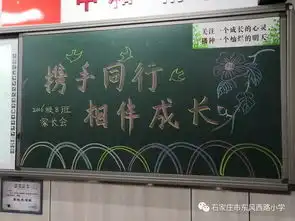 关注一个成长的心灵
播种一个灿烂的明天
携手同行
相伴成长
2016级8班
家长会
石家庄市东风西路小学